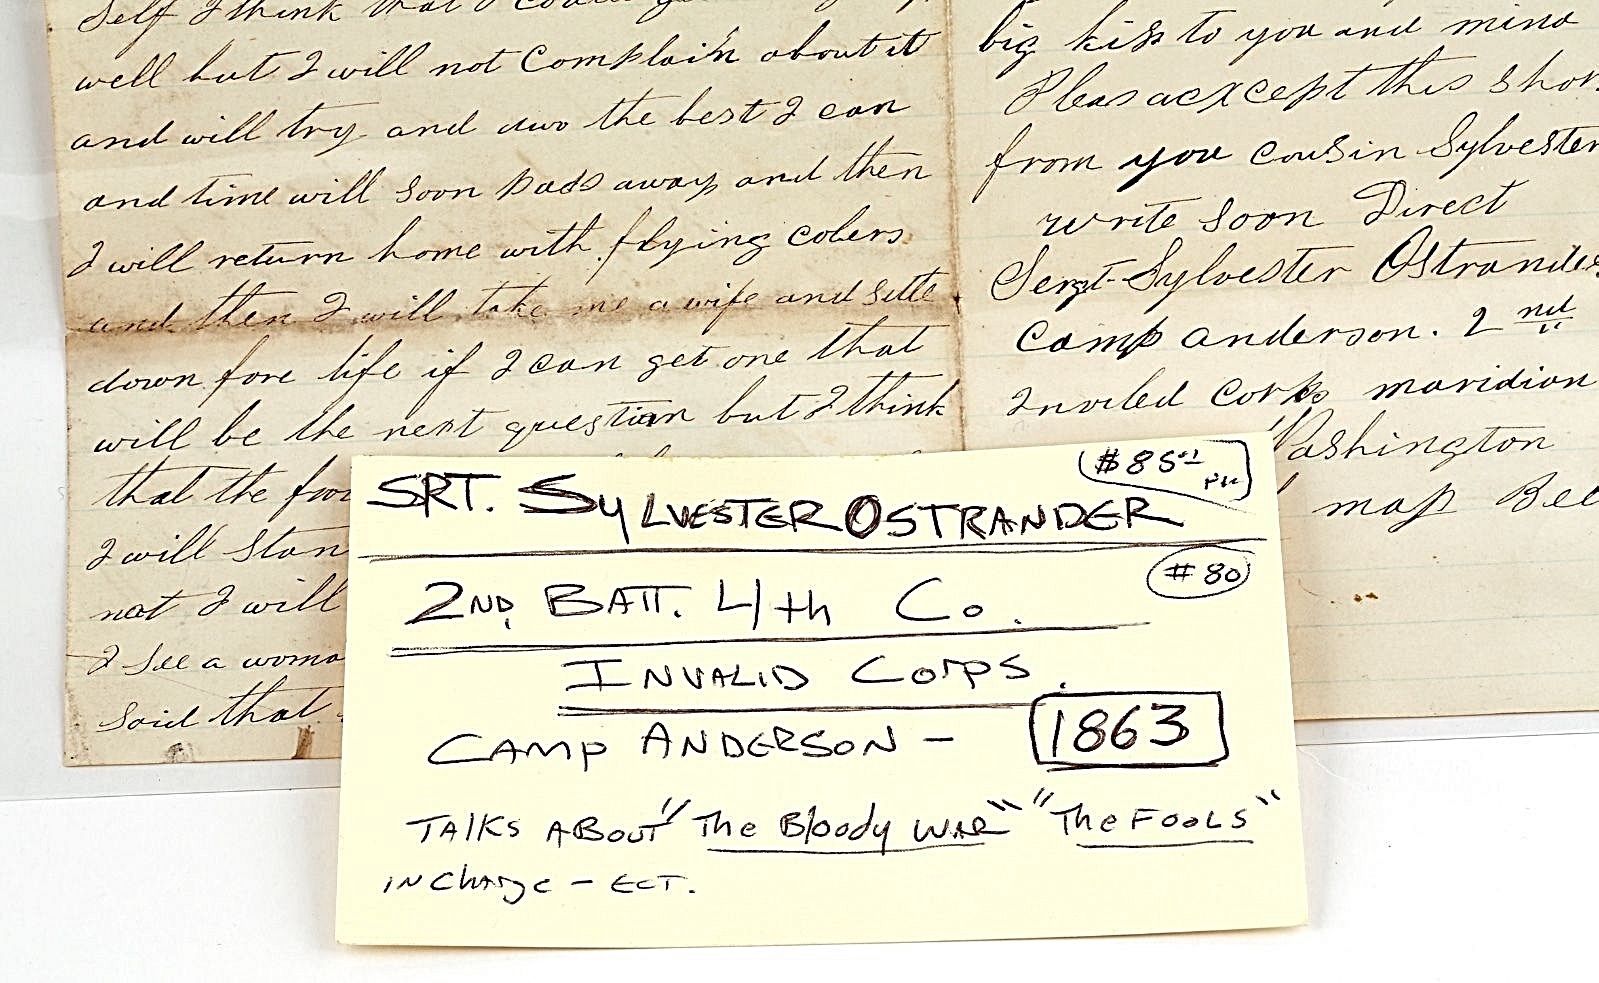 self I think that I could
well but I will not complain about it
and will try and duo the best I can
and time will soon pass away and then
I will return home with flying colers
and then I will take me a wife and settle
down fore life if I can get one that
will be the next question but I think
that the
I will stan
not I will
I see a woma
said that
big kiss to you and mind
Pleas acxcept this shor
from you cousin Sylvester
write soon Direct
Sergt. Sylvester Ostrander
Camp anderson. 2 nd
Inviled Corps maridian
Washington
map Bee
#85
SRT. SYLVESTER OSTRANDER
#80
2ND. BATT. 4th Co.
INVALID Corps.
CAMP ANDERSON - 1863
TALKS ABOUT "The Bloody WAR" "The FOOLS"
IN Charge - ECT.